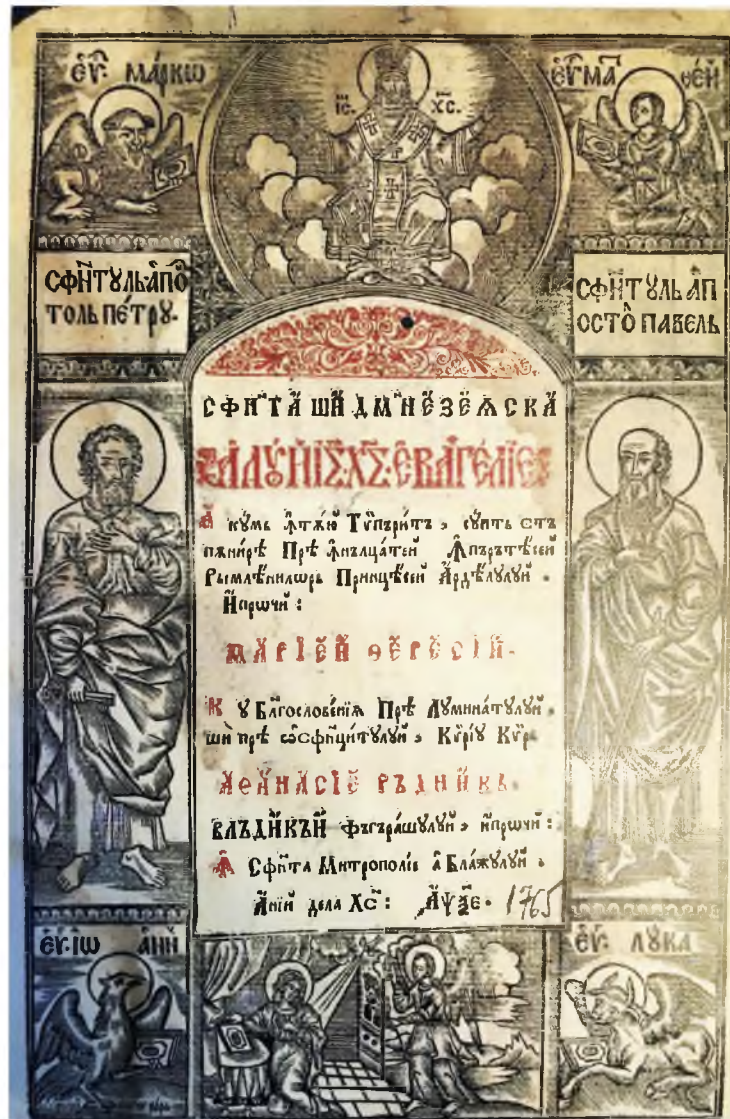 ЕѴ: МАРКѠ
І҆С. ХС.
ЕѴ МАⷮ ѲЕЙ
СФН҃ТꙊЛЬ А҆ПО
ТОЛЬ ПЕТРꙊ.
СФН҃ТꙊЛЬ А҆П
ОСТО ПАВЕЛЬ
СФН҃ТА ШИ ДМ҃НЕЗЕѦСКА
А ЛꙊЙ І҆С ХС ЕВА҃ГЕЛІЕ
А кꙋмь ꙟтѫю Тѵпъритъ, сꙋпть стъ
пѫнирѣ Прѣ ꙟнълцатей ꙟпърътѣсей
Рымлѣнилѡрь Принцѣсей Ардѣлꙋлꙋй.
Ипрѡчи:
МАРІЕЙ ѲЕРЕСІЙ.
К ꙋ Благословенїѧ Прѣ Лꙋминатꙋлꙋй,
ши прѣ ѡсфинцитꙋлꙋй, Кѵрїꙋ Кѵрь
АѲАНАСІЕ РЪДНИКЬ.
ВЛЪДИКЪЙ Фъгърашꙋлꙋй, ипрѡчи:
ꙟ Сфн҃та Митрополїе а Блажꙋлꙋй,
Анїй дела Хс҃: ҂АѰѮЕ. 1765
ЕѴ. ІѠ АНН
ЕѴ. ЛꙊКА